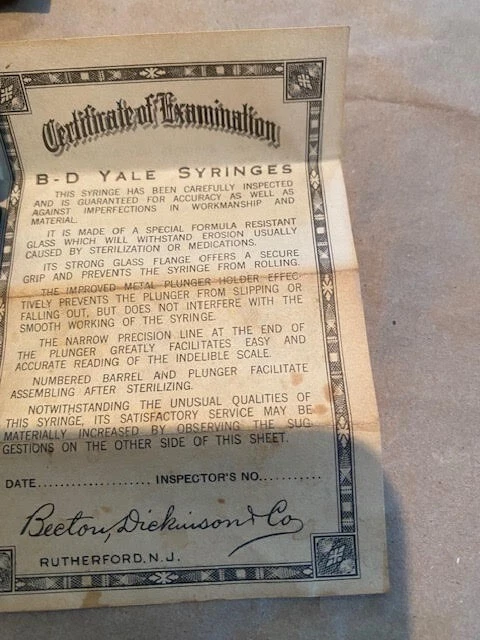 Certificate of Examination
B-D YALE SYRINGES
THIS SYRINGE HAS BEEN CAREFULLY INSPECTED
AND IS GUARANTEED FOR ACCURACY AS WELL AS
AGAINST IMPERFECTIONS IN WORKMANSHIP AND
MATERIAL.
IT IS MADE OF A SPECIAL FORMULA RESISTANT
GLASS WHICH WILL WITHSTAND EROSION USUALLY
CAUSED BY STERILIZATION OR MEDICATIONS.
ITS STRONG GLASS FLANGE OFFERS A SECURE
GRIP AND PREVENTS THE SYRINGE FROM ROLLING.
THE IMPROVED METAL PLUNGER HOLDER EFFEC-
TIVELY PREVENTS THE PLUNGER FROM SLIPPING OR
FALLING OUT, BUT DOES NOT INTERFERE WITH THE
SMOOTH WORKING OF THE SYRINGE.
THE NARROW PRECISION LINE AT THE END OF
THE PLUNGER GREATLY FACILITATES EASY AND
ACCURATE READING OF THE INDELIBLE SCALE.
NUMBERED BARREL AND PLUNGER FACILITATE
ASSEMBLING AFTER STERILIZING.
NOTWITHSTANDING THE UNUSUAL QUALITIES OF
THIS SYRINGE, ITS SATISFACTORY SERVICE MAY BE
MATERIALLY INCREASED BY OBSERVING THE SUG-
GESTIONS ON THE OTHER SIDE OF THIS SHEET.
DATE................... INSPECTOR'S NO...........
Becton, Dickinson & Co
RUTHERFORD, N. J.